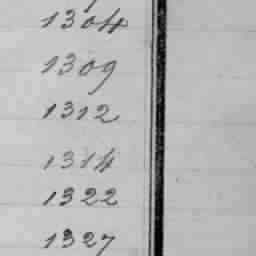 1304
1309
1312
1314
1322
1327